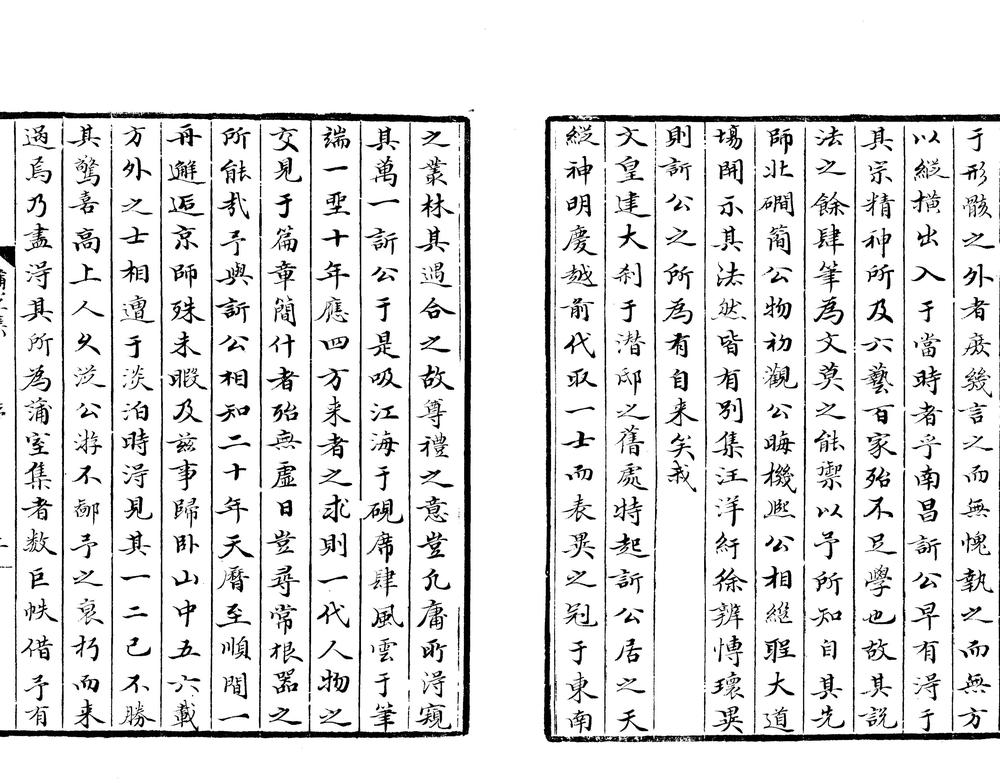 于形骸之外者庻幾言之而無愧執之而無方
以縱横出入于當時者乎南昌訢公早有淂于
其宗精神所及六藝百家殆不足學也故其説
法之餘肆筆為文莫之能禦以予所知自其先
師北磵簡公物初觀公晦機熙公相繼聖大道
場開示其法然皆有别集汪洋紆徐辨博瓌異
則訢公之所為有自来矣我
文皇建大刹于潜邸之舊處特起訢公居之天
縱神明慶越前代取一士而表異之冠于東南
之叢林其遇合之故尊禮之意豈凢庸所淂窺
其萬一訢公于是吸江海于硯席肆風雲于筆
端一坐十年應四方来者之求則一代人物之
交見于篇章簡什者殆無虚日豈尋常根器之
所能㢤予與訢公相知二十年天暦至順間一
再邂逅京師殊未暇及兹事歸卧山中五六載
方外之士相遭于淡泊時淂見其一二已不勝
其驚喜高上人乆從公游不鄙予之衰朽而来
過焉乃盡淂其所為蒲室集者数巨帙借予有
蒲室集
序